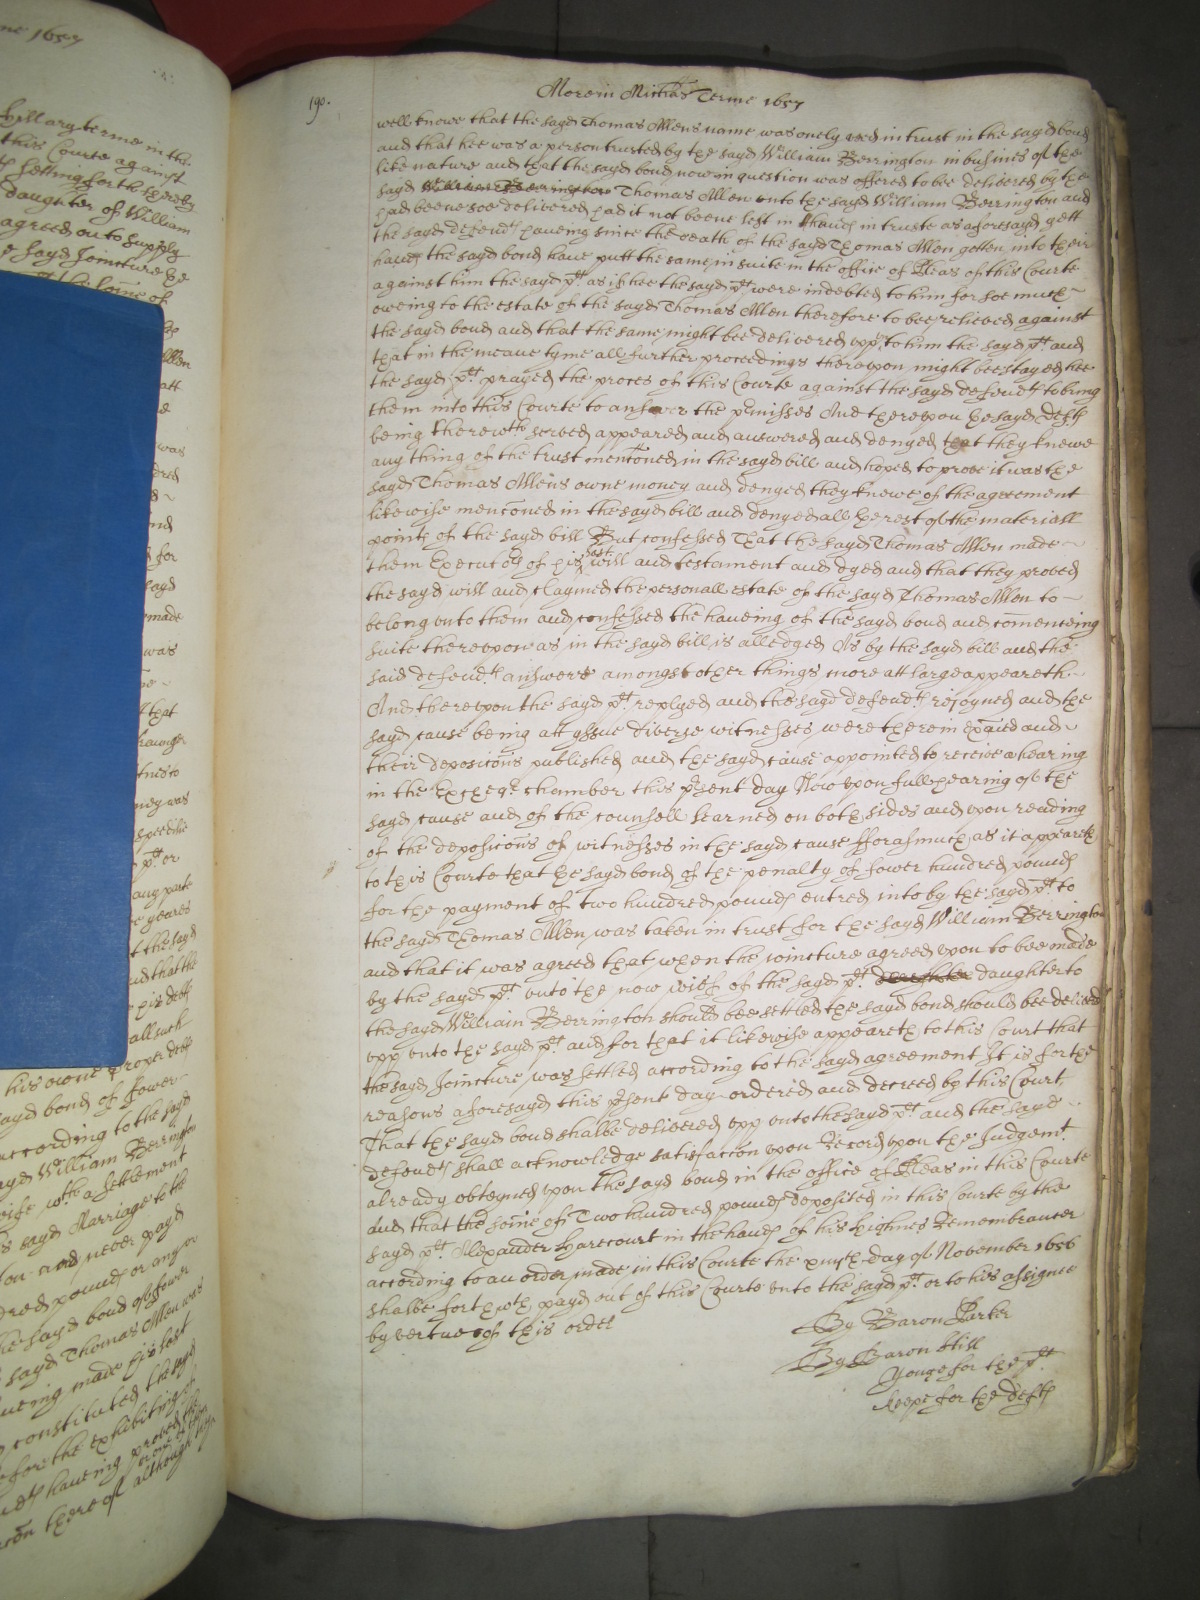 ne 1657
hillary terme in the
this Courte against
setting forth thereby
daughter of William
agreed on to supply
e sayd Joincture he
the some of
Allen
att
was
ond
for
sayd
made
was
that
tnes to
ney was
speed the
ptt or
any parte
e yeares
t the sayd
nd that the
his debt
all such
his owne proper debt
sayd bond of fower
according to the sayd
sayd William Berrington
wife wth a settlement
s sayd Marriage to the
ton and never payd
dred pounds or any or
he sayd bond of fower
sayd Thomas Allen was
aueing made his last
constituted the sayd
efore the exhibiting of
haueing proved the
one of them
thereof although they
190.
More in Michās Terme 1657
well knowe that the sayd Thomas Allens name was onely used in trust in the sayd bond
and that hee was a person trusted by the sayd William Berrington in busines of the
like nature and that the sayd bond now in question was offered to bee delivered by the
sayd William Berrington Thomas Allen unto the sayd William Berrington and
had beene soe delivered had it not beene left in hands in truste as aforesayd yett
the sayd defendts haueing since the death of the sayd Thomas Allen gotten into their
hands the sayd bond haue putt the same in suite in the office of Pleas of this Courte
against him the sayd ptt as if hee the sayd ptt were indebted to him for soe much
oweing to the estate of the sayd Thomas Allen therefore to bee relieved against
the sayd bond and that the same might bee delivered upp to him the sayd ptt and
that in the meane tyme all further proceedings thereupon might bee stayed hee
the sayd ptt prayed the proces of this Courte against the sayd defendts to bring
them into this Courte to answer the pmisses And thereupon he sayd defts
being therewth served appeared and answered and denyed that they knewe
any thing of the trust mentoned in the sayd bill and hoped to prove it was the
sayd Thomas Allens owne money and denyed they knewe of the agreement
likewise mencōned in the sayd bill and denyed all the rest of the materiall
points of the sayd bill But confessed That the sayd Thomas Allen made
them Executors of his last will and testament and dyed and that they proved
the sayd will and claymed the personall estate of the sayd Thomas Allen to
belong unto them and confessed the haueing of the sayd bond and comenceing
suite thereupon as in the sayd bill is alledged As by the sayd bill and the
said defendts answere amongst other things more att large appeareth
And thereupon the sayd ptt replyed and the sayd defendts rejoyned and the
sayd cause being att yssue diverse witnesses were therein exāied and
their deposicōns published and the sayd cause appointed to receive a hearing
in the Excheqr chamber this psent day Now upon full hearing of the
sayd cause and of the counsell learned on both sides and upon reading
of the deposicōns of witnesses in the sayd cause fforasmuch as it appeareth
to this Courte that he sayd bond of the penalty of fower hundred pounds
for the payment of two hundred pounds entred into by the sayd ptt to
the sayd Thomas Allen was taken in trust for the sayd William Berrington
and that it was agreed that when the joincture agreed upon to bee made
by the sayd ptt unto the now wife of the sayd ptt daughter daughter to
the sayd William Berrington should bee settled the sayd bond should bee delivered
upp unto the sayd ptt and for that it likewise appeareth to this Court that
the sayd Joincture was settled according to the sayd agreement It is for the
reasons aforesayd this psent day ordered and decreed by this Court
That the sayd bond shalbe delivered upp unto the sayd ptt and the sayd
defendts shall acknowledge satisfaccōn upon Record upon the Judgemt
already obteyned upon the sayd bond in the office of Pleas in this Courte
And that the some of Two hundred pounds deposited in this Courte by the
sayd ptt Alexander Harecourt in the hands of his Highnes Remembrancer
according to an order made in this Courte the day of November 1656
shalbe forthwth payd out of this Courte unto the sayd ptt or to his assignee
by vertue of this order
By Baron Parker
By Baron Hill
Yonge for the ptt
for the defts